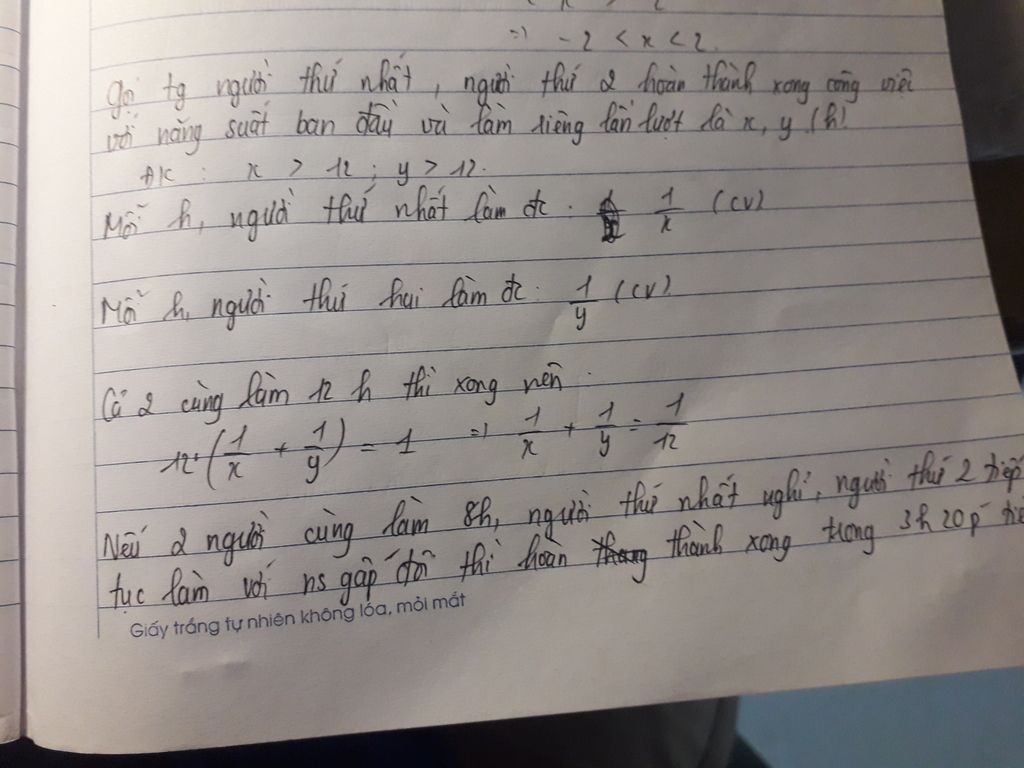 => -2 < x < 2.
Gọi tg người thứ nhất, người thứ 2 hoàn thành xong công việc
với năng suất ban đầu và làm riêng lần lượt là x, y (h)
ĐK : x > 12 ; y > 12.
Mỗi h, người thứ nhất làm đc : 1/x (cv)
Mỗi h, người thứ hai làm đc : 1/y (cv)
Cả 2 cùng làm 12 h thì xong nên :
12.(1/x + 1/y) = 1 => 1/x + 1/y = 1/12
Nếu 2 người cùng làm 8h, người thứ nhất nghỉ, người thứ 2 tiếp
tục làm với ns gấp đôi thì hoàn thành xong trong 3h20p
Giấy trắng tự nhiên không lóa, mỏi mắt